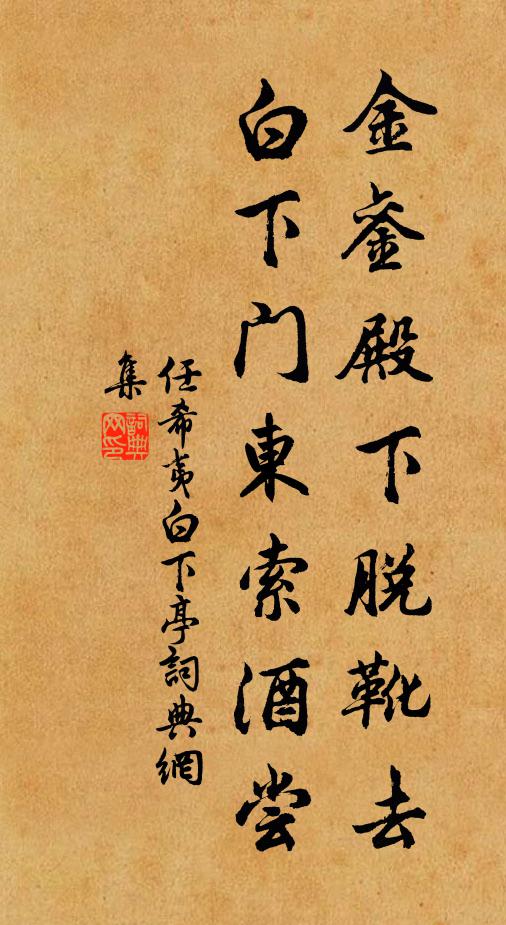 金銮殿下脱靴去
白下門東索酒尝
任希夷白下亭詞典網
集
詞典
网印